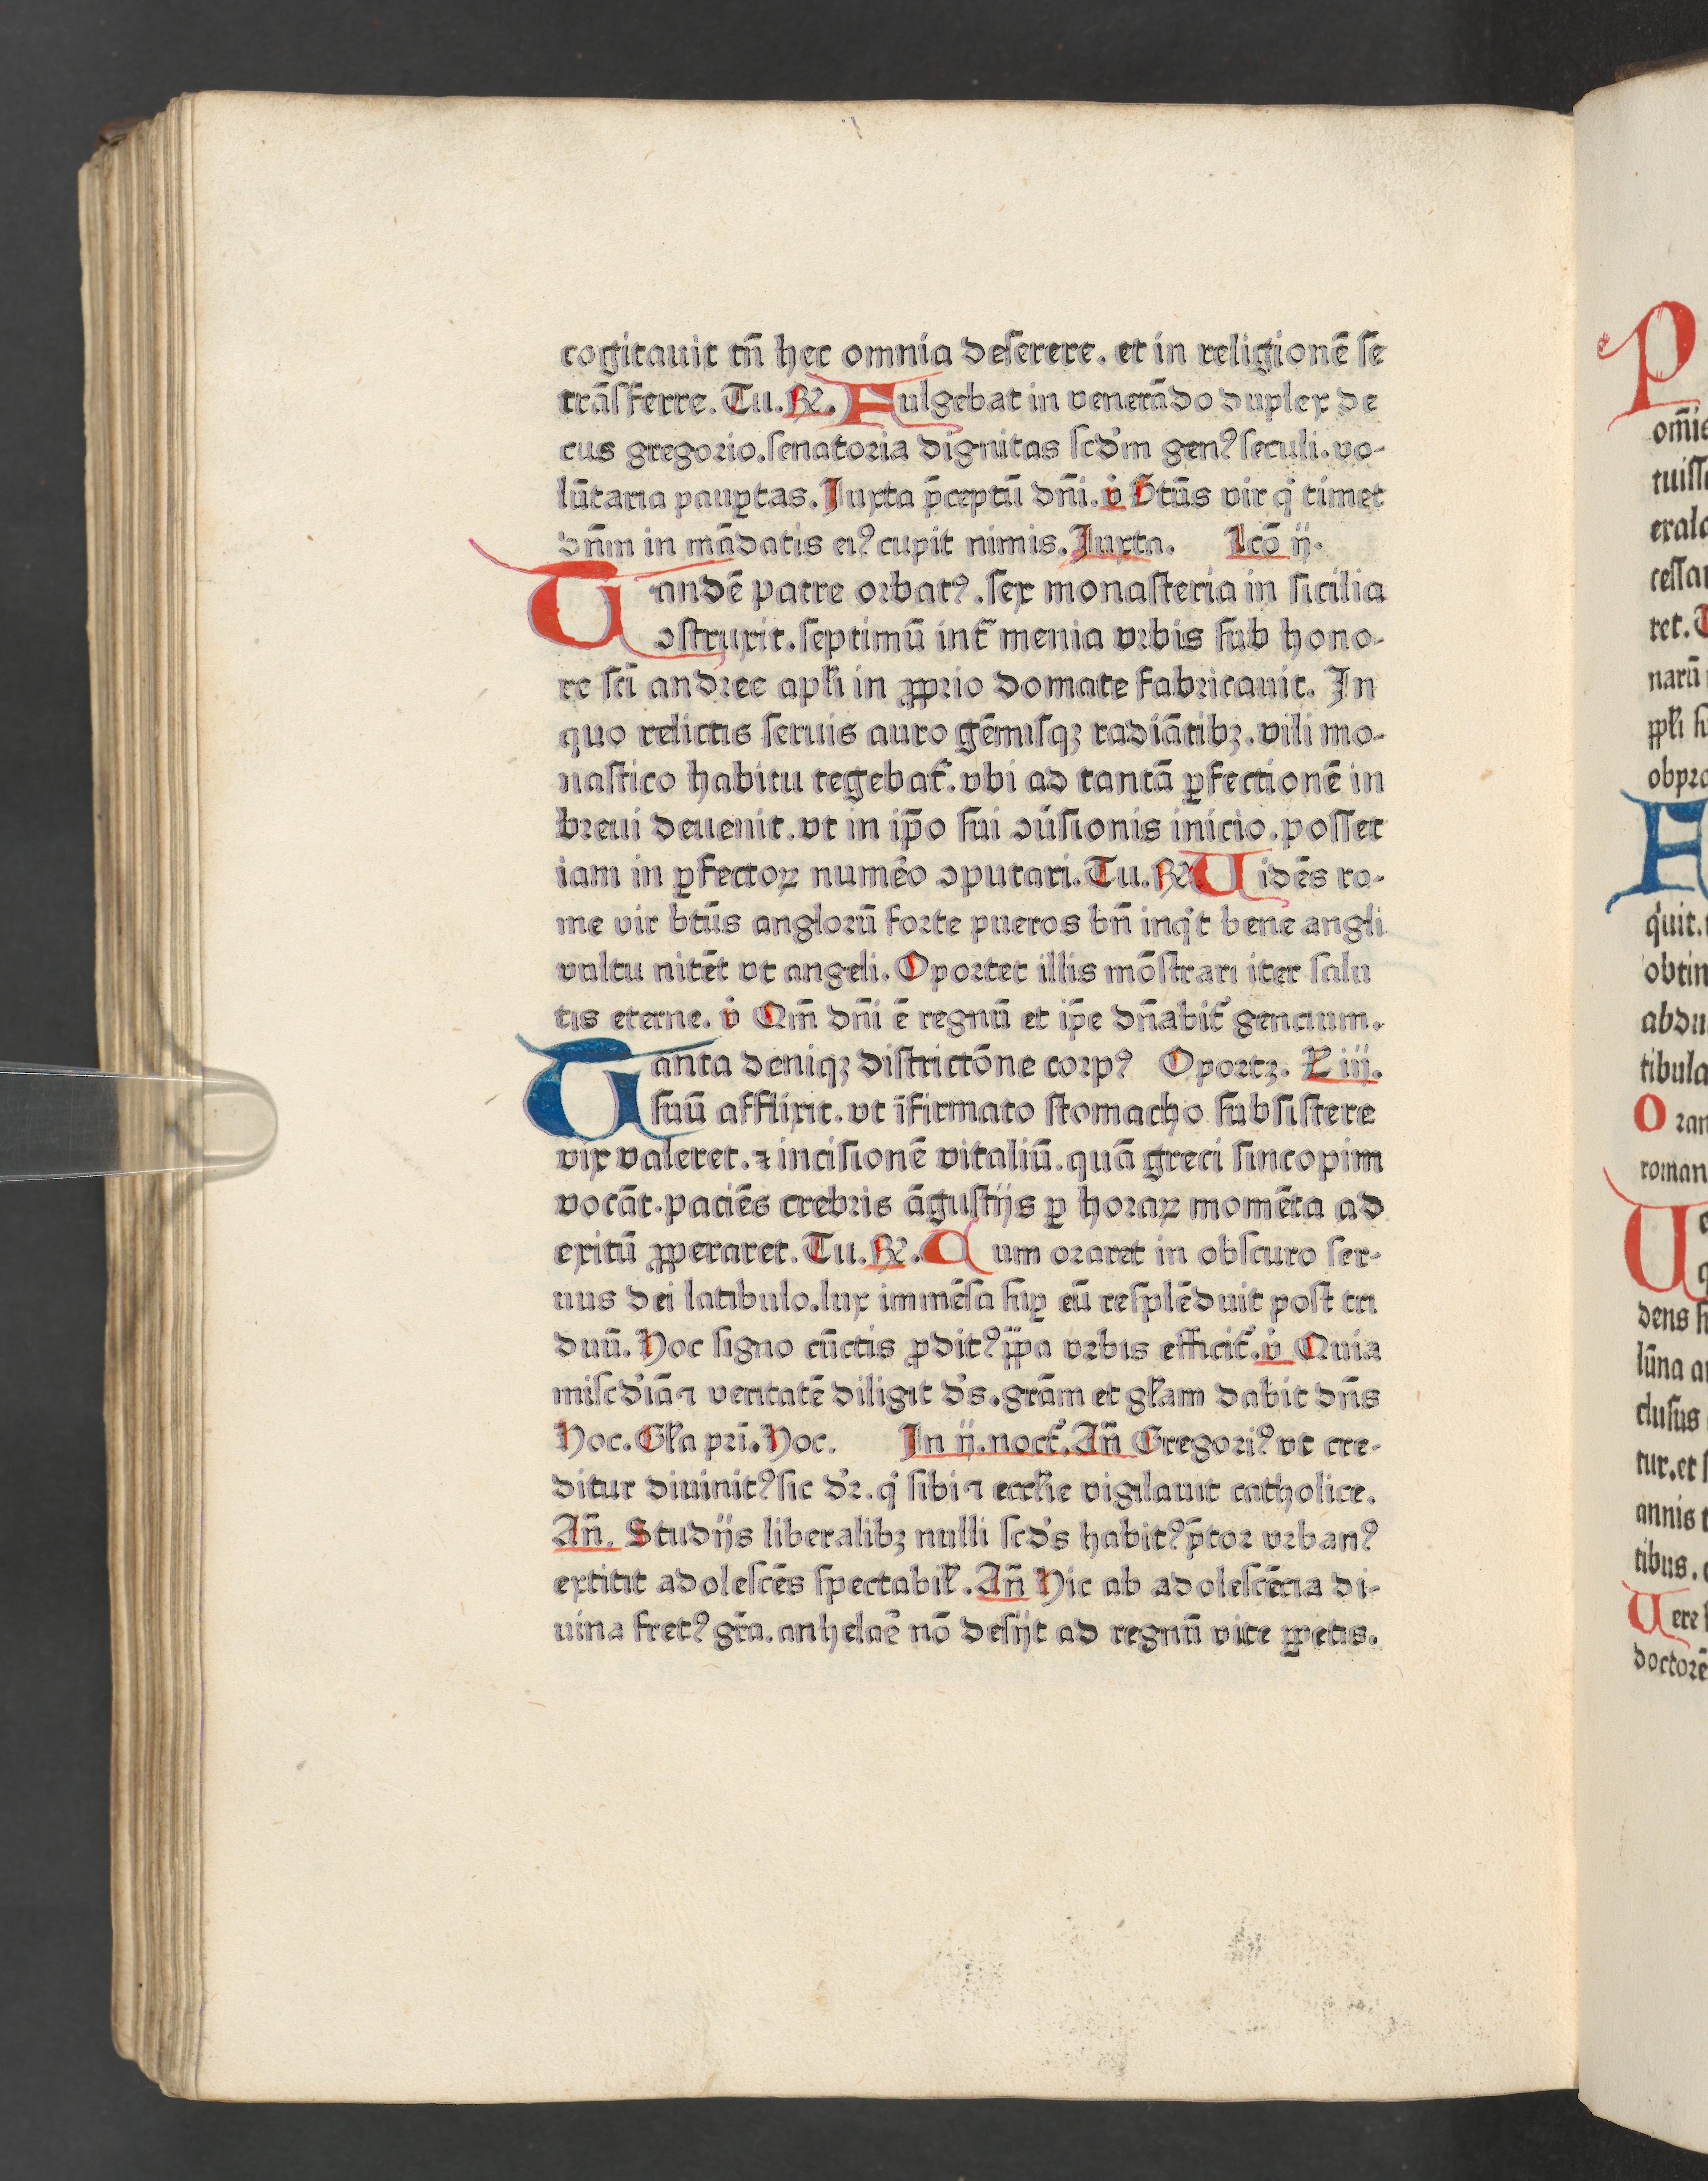 cogitauit tn̄ hec omnia deſerere. et in religionē ſe
trāſferre. Tu. ℟. Fulgebat in venerādo duplex de
cus gregorio. ſenatoria dignitas ſcd'm genꝰ ſeculi. vo-
lūtaria paup̱tas. Juxta p̄ceptū dn̄i. v̇ Btūs vir q' timet
dn̄m in mādatis eiꝰ cupit nimis. Juxta. Lcō ij.
Tandē patre orbatꝰ. ſex monaſteria in ſicilia
ꝯſtruxit. ſeptimū int̄ menia vrbis ſub hono-
re ſcī andree apl'i in ꝓprio domate fabricauit. In
quo relictis ſeruis auro gēmiſqꝫ radiātibꝫ. vili mo-
naſtico habitu tegebat'. vbi ad tantā ꝑfectionē in
breui deuenit. vt in ip̄o ſui ꝯuſ̄ionis inicio. poſſet
iam in ꝑfectoꝝ numēo ꝯputari. Tu. ℟ Uidēs ro-
me vir btūs anglorū forte pueros bn̄ inq't bene angli
vultu nitēt vt angeli. Oportet illis mōſtrari iter ſalu
tis eterne. v̇ Qm̄ dn̄i ē regnū et ip̄e dn̄abit' gencium.
Tanta deniqꝫ diſtrictōne corpꝰ Oportꝫ. L iij.
ſuū afflixit. vt īfirmato ſtomacho ſubſiſtere
vix valeret. ⁊ inciſionē vitaliū. quā greci ſincopim
vocāt. paciēs crebris āguſtijs ꝑ horaꝝ momēta ad
exitū ꝓperaret. Tu. ℟. Cum oraret in obſcuro ſer-
uus dei latibulo. lux immēſa ſuꝑ eū reſplēduit poſt tri
duū. Hoc ſigno cūctis ꝓditꝰ p̄pa vrbis efficit'. v̇ Quia
miſcd'iā ⁊ veritatē diligit d's. grām et gl'am dabit dn̄s
Hoc. Gl'a pri. Hoc. In ij. noct'. An̄ Gregoriꝰ vt cre-
ditur diuinitꝰ ſic d'r. q' ſibi ⁊ eccl'ie vigilauit catholice.
An̄. Studijs liberalibꝫ nulli ſcd's habitꝰ p̄tor vrbanꝰ
extitit adoleſcēs ſpectabil'. An̄ Hic ab adoleſcēcia di-
uina fretꝰ gr̄a. anhelaē nō deſijt ad regnū vite ꝑpetis.
P
om̄ie
tuiſſ
exalc
ceſſa
ret. T
narū
ppl'i ſ
obpro
F
q'uit.
obtin
abdu
tibula
Oran
roman
U
dens ſ
lūna a
cluſus
tur. et ſ
annis t
tibus.
Uere
doctorē